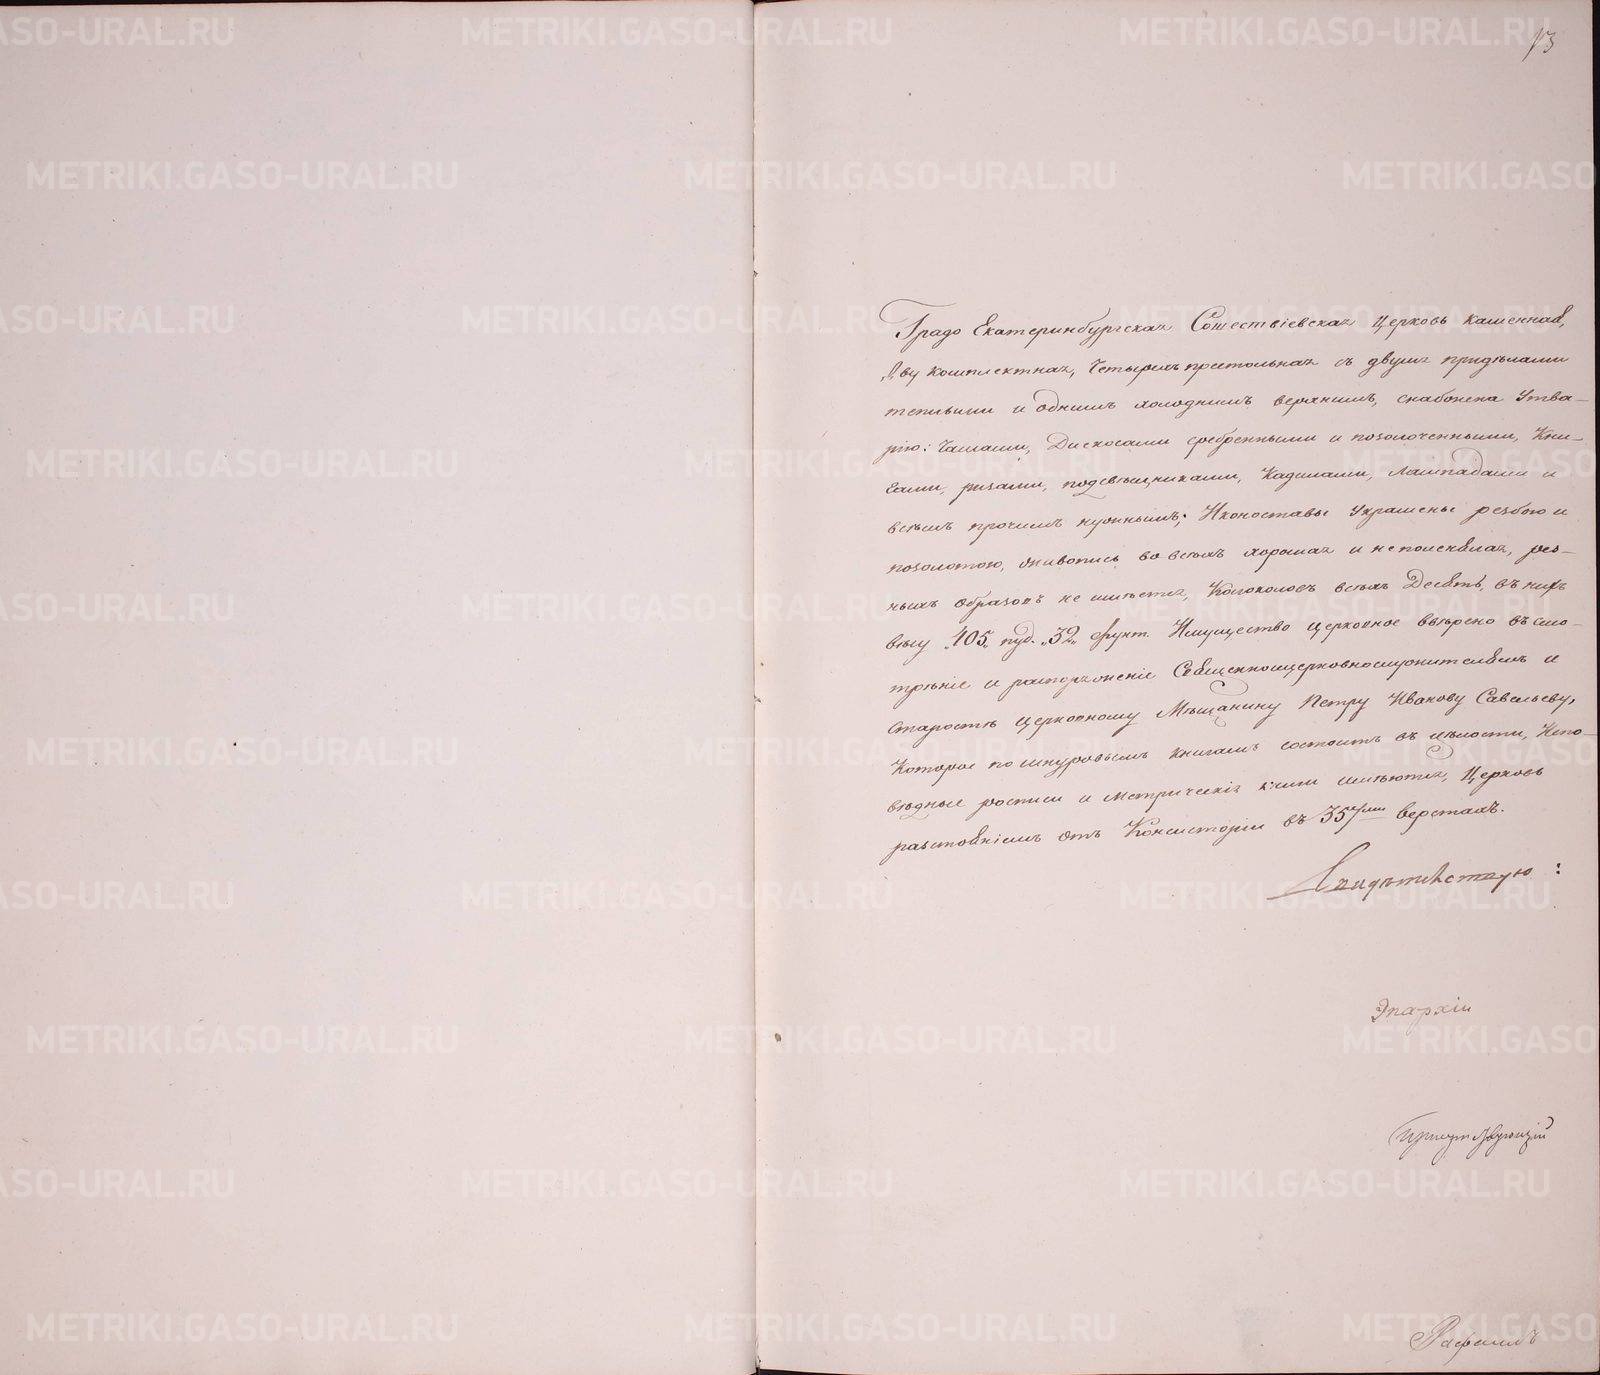 13
Градо Екатеринбургская Сошествіевская церковь каменная,
Двукомплектная, Четырехпрестольная съ двумя придѣлами
теплыми и однимъ холоднымъ верхнимъ, снабжена Утва-
рію: Чашами, Дискосами сребренными и позолоченными, Кни-
гами, ризами, подсвѣщниками, Кадилами, Лампадами и
всѣмъ прочимъ нужнымъ; Иконостасы Украшены резбою и
позолотою, живопись во всѣхъ хороша и не полиняла, рез-
ныхъ образовъ не имѣется, Колоколовъ всѣхъ Десять, въ нихъ
вѣсу „105„ пуд. „32„ фунт. Имущество церковное ввѣрено въ смо-
трѣніе и распоряженіе Священноцерковнослужителямъ и
старостѣ церковному Мѣщанину Петру Иванову Савельеву,
Которое по шнуровымъ книгамъ состоитъ въ цѣлости, Испо-
вѣдные росписи и метрическія книги имѣются, Церковь
разстояніемъ отъ Консисторіи въ 357ми верстахъ.
Свидѣтельствую:
Эпархіи
присутствующій
Рафаилъ
METRIKI.GASO-URAL.RU